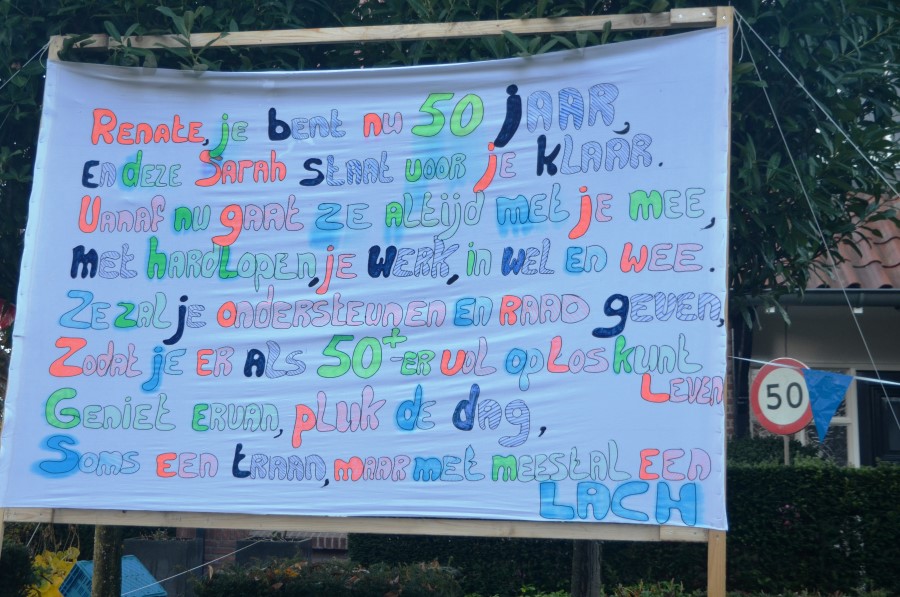 Renate, je bent nu 50 jaar,
En deze Sarah staat voor je klaar.
Vanaf nu gaat ze altijd met je mee,
met hardlopen, je werk, in wel en wee.
Ze zal je ondersteunen en raad geven,
Zodat je er als 50+-er vol op los kunt
Leven
Geniet ervan, pluk de dag,
Soms een traan, maar met meestal een
LACH
50